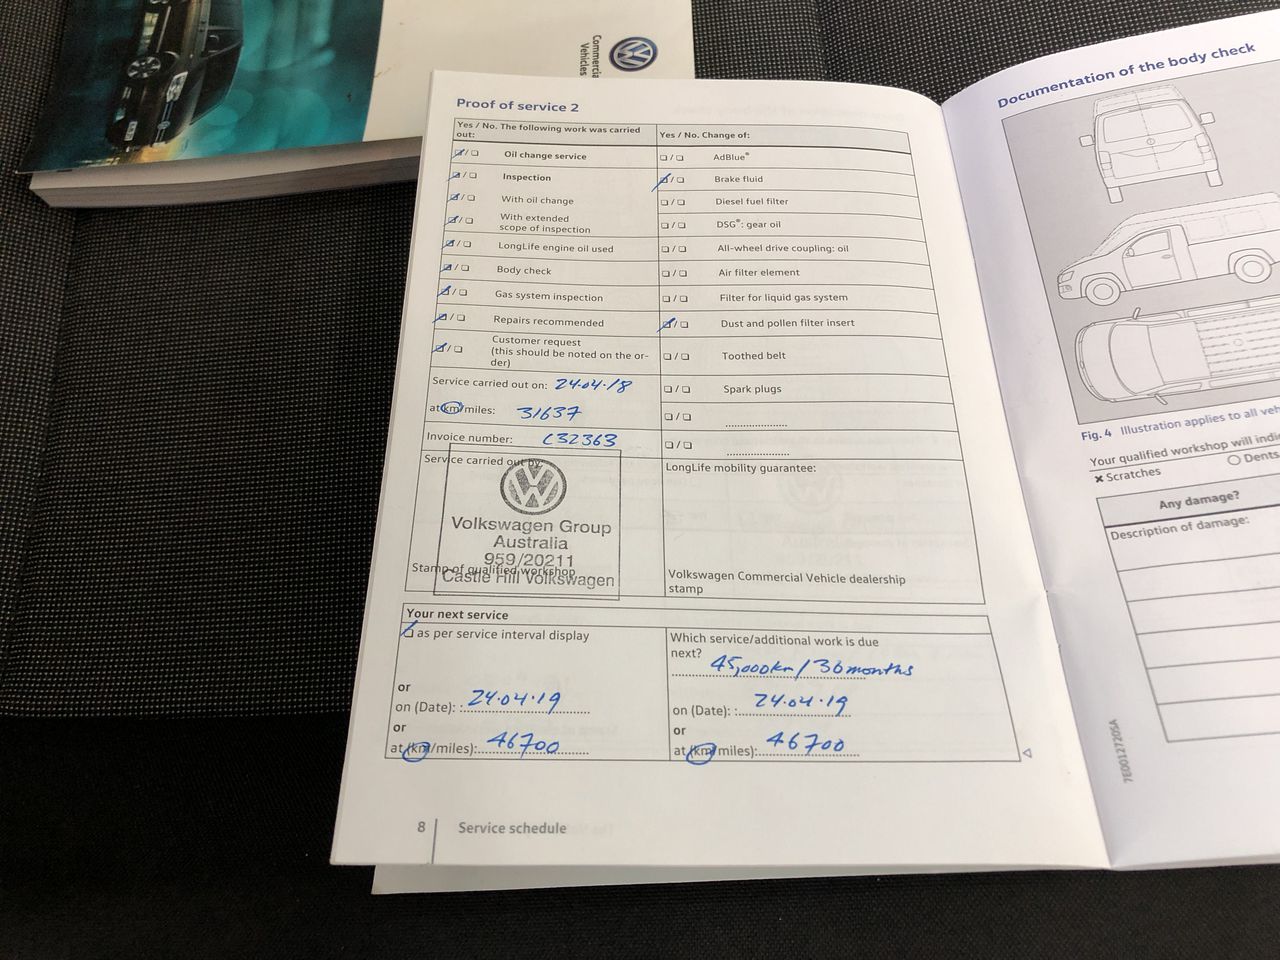 Commercial
Vehicles
Proof of service 2
Yes / No. The following work was carried
out:
Yes / No. Change of:
Oil change service
AdBlue®
Inspection
Brake fluid
With oil change
Diesel fuel filter
With extended
scope of inspection
DSG®: gear oil
LongLife engine oil used
All-wheel drive coupling: oil
Body check
Air filter element
Gas system inspection
Filter for liquid gas system
Repairs recommended
Dust and pollen filter insert
Customer request
(this should be noted on the or-
der)
Toothed belt
Service carried out on: 24.04.18
Spark plugs
at km/miles: 31637
Invoice number: C32363
Service carried out by:
LongLife mobility guarantee:
Volkswagen Group
Australia
959/20211
Castle Hill Volkswagen
Stamp of qualified workshop
Volkswagen Commercial Vehicle dealership
stamp
Your next service
as per service interval display
Which service/additional work is due
next? 45,000km / 36 months
or
on (Date): : 24.04.19
on (Date): : 24.04.19
or
or
at (km/miles): 46700
at (km/miles): 46700
8 Service schedule
Documentation of the body check
Fig. 4 Illustration applies to all
Your qualified workshop will
× Scratches
○ Dents
Any damage?
Description of damage:
7E0012720SA